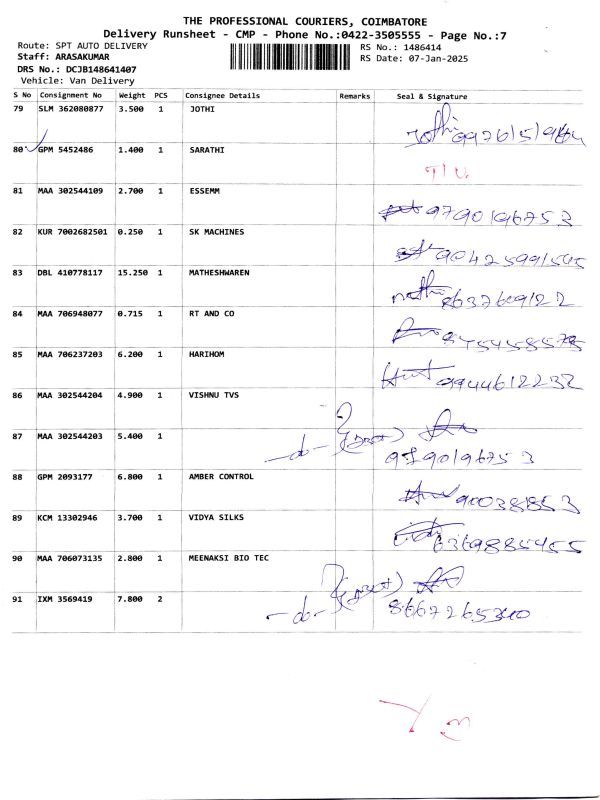 THE PROFESSIONAL COURIERS, COIMBATORE
Delivery Runsheet - CMP - Phone No.:0422-3505555 - Page No.:7
Route: SPT AUTO DELIVERY RS No.: 1486414
Staff: ARASAKUMAR RS Date: 07-Jan-2025
DRS No.: DCJB148641407
Vehicle: Van Delivery
S No Consignment No Weight PCS Consignee Details Remarks Seal & Signature
79 SLM 362080877 3.500 1 JOTHI
80 GPM 5452486 1.400 1 SARATHI
81 MAA 302544109 2.700 1 ESSEMM
9790196753
82 KUR 7002682501 0.250 1 SK MACHINES
90425991545
83 DBL 410778117 15.250 1 MATHESHWAREN
84 MAA 706948077 0.715 1 RT AND CO
85 MAA 706237203 6.200 1 HARIHOM
9944612232
86 MAA 302544204 4.900 1 VISHNU TVS
87 MAA 302544203 5.400 1
-do-
9790196753
88 GPM 2093177 6.800 1 AMBER CONTROL
90038853
89 KCM 13302946 3.700 1 VIDYA SILKS
6369885455
90 MAA 706073135 2.800 1 MEENAKSI BIO TEC
91 IXM 3569419 7.800 2
-do- 8667265340